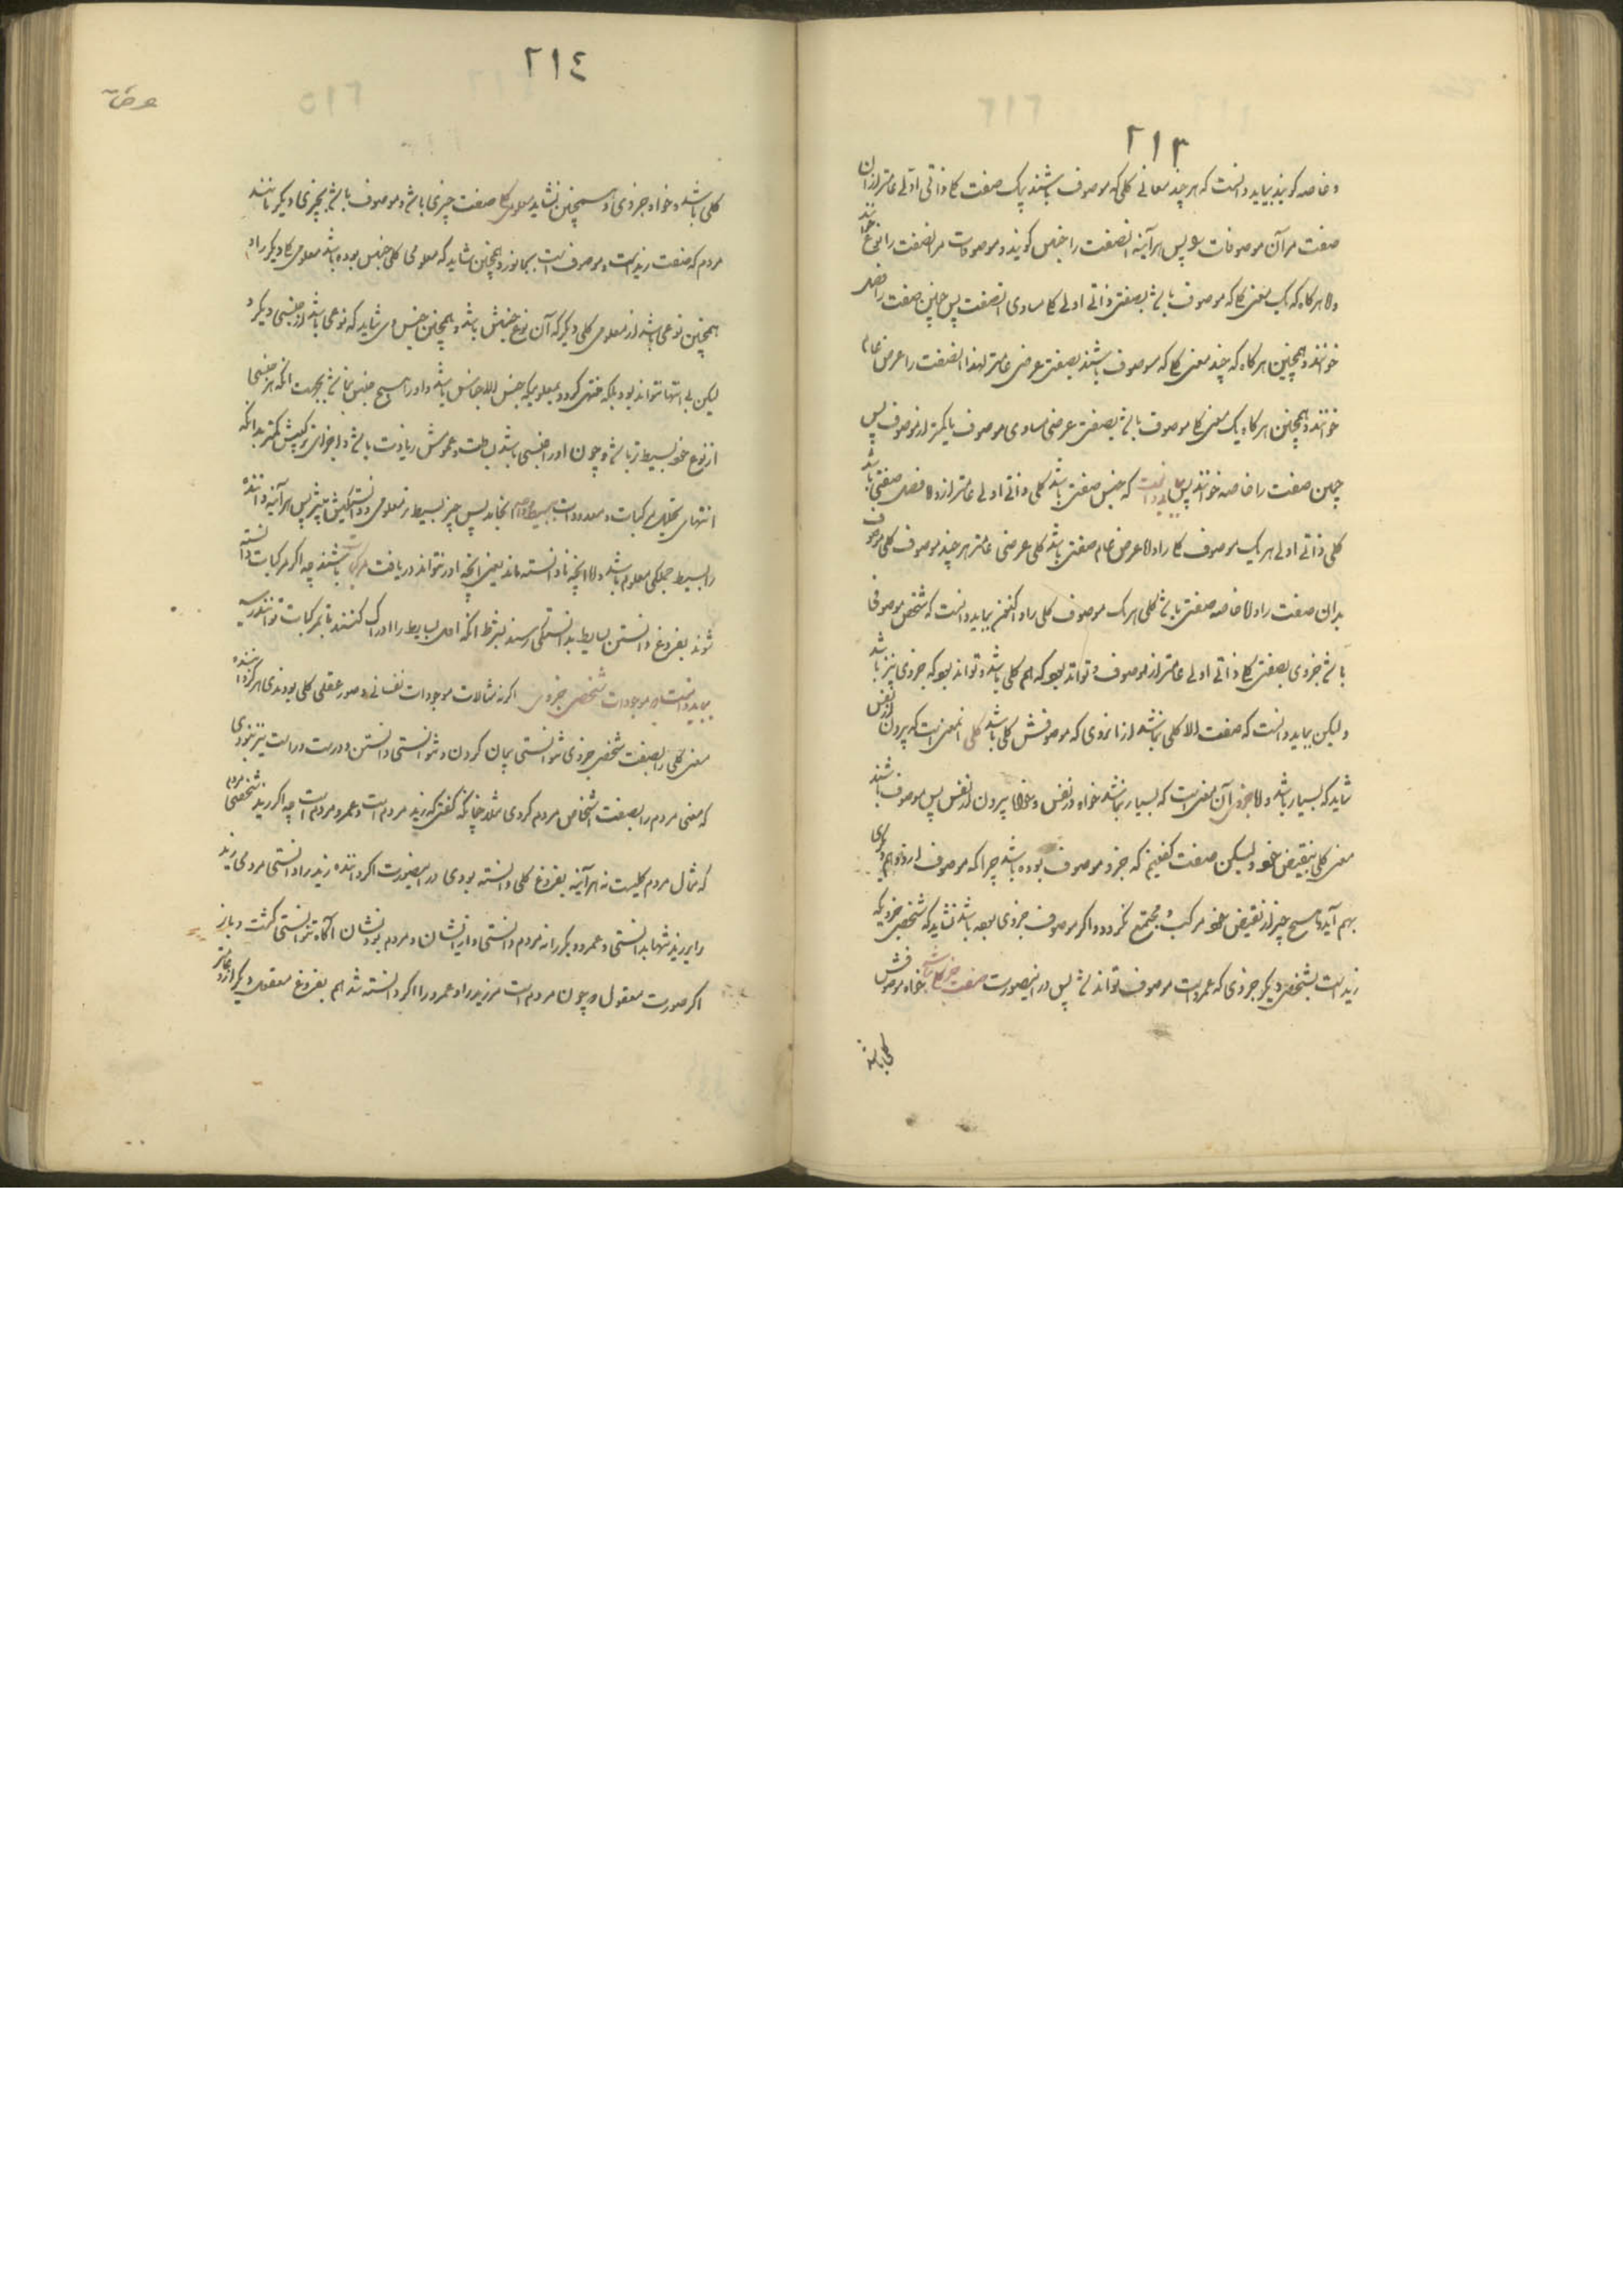 ٢١٣
و خاصه کویند بباید دانست که هر چند معانی کلی که موصوف باشند بیک صفت کلی ذاتی اولی عامتر از آن
صفت مر آن موصوفات بود پس هر آینه آن صفت را جنس کویند و موصوفات مر آن صفت را نوع خوانند
و هر کاه که یک معنی کلی که موصوف باشد بصفتی ذاتی اولی کلی مساوی آن صفت پس چنین صفت را فصل
خوانند و همچنین هر کاه که چند معنی کلی که موصوف باشند بصفتی عرضی عامتر لهذا آن صفت را عرض عام
خوانند و همچنین هر کاه یک معنی کلی موصوف باشد بصفتی عرضی مساوی موصوف یا کمتر از موصوف پس
چنین صفت را خاصه خوانند پس بباید دانست که جنس صفتی باشد کلی ذاتی اولی عامتر از و فصل صفتی باشد
کلی ذاتی اولی هر یک موصوف کلی را و عرض عام صفتی باشد کلی عرضی عامتر هر چند موصوف کلی موصوف
بدان صفت را و خاصه صفتی باشد کلی هر یک موصوف کلی را و اکنون بباید دانست که شخص موصوفی
باشد جزوی بصفتی کلی ذاتی اولی عامتر از موصوف و تواند بود که هم کلی باشد و تواند بود که جزوی نیز باشد
و لیکن بباید دانست که صفت الا کلی نباشد از انروی که موصوفش کلی باشد کلی آن معنی است که بیرون از نفس
شاید که بسیار باشد و جزوی آن معنی است که بسیار نباشد خواه در نفس و خواه بیرون از نفس پس موصوف باشند
معنی کلی بنقیض خود و لیکن صفت کفتیم که جزو موصوف بوده باشد چرا که موصوف از و و از دیگری
بهم آید و هیچ چیز از نقیض خود مرکب و مجتمع نکردد و اکر موصوف جزوی بود باشد نشاید که شخص جزوی که
زید است بشخص دیکر جزوی که عمرو است موصوف تواند شد پس در اینصورت صفت جز کلی نباشد خواه موصوفش
کلی باشد
٢١٤
کلی باشد و خواه جزوی و همچنین نشاید معلومی کلی صفت چیزی باشد و موصوف باشد بچیزی دیکر مانند
مردم که صفت زید است و موصوف است بجانور و همچنین شاید که معلومی کلی جنس بوده باشد معلومی کلی دیکر را و
همچنین نوعی باشد از معلومی کلی دیکر که آن نوع جنسش باشد و همچنین جنس وی شاید که نوعی باشد از جنسی دیکر و
لیکن بی انتها نتواند بود بلکه منتهی کردد بمعلومیکه جنس الاجناس باشد و او را هیچ جنس نباشد بجهت انکه هر جنسی
از نوع خود بسیط تر باشد و چون او را جنسی باشد بساطت و عمومش زیادت باشد و اجزای ترکیبش کمتر بدانکه
انتهای تحلیل مرکبات و معدودات ببسیط و واحد انجامد پس چیز بسیط تر معلومی و دانستگیش بیشتر پس هر آینه داننده
را بسیط جملکی معلوم باشد و الا انچه نادانسته ماند یعنی انچه او نتواند دریافت مرکب باشند چه اکر مرکبات دانسته
شوند بفروغ دانستن بسایط بدانستکی رسند بشرط انکه اول بسایط را ادراک کنند تا بمرکبات توانند رسید
بباید دانست در موجودات شخصی جزوی اکر نه مثالات موجودات نفسانی و صور عقلی کلی بودندی هرکز داننده
معنی کلی را بصفت شخص جزوی نتوانستی بیان کردن و نتوانستی دانستن و درست و راست نیز نبودی
که معنی مردم را بصفت اشخاص مردم کردی مثلا چنانکه کفتی که زید مردم است و عمرو مردم است چه اکر زید شخصی مردم
که مثال مردم کلیست نه هر آینه بفروغ کلی دانسته بودی در اینصورت اکر داننده زید را دانستی مردمی زید
را بر زید تنها بدانستی و عمرو و بکر را نه مردم دانستی و از ایشان و مردم بودنشان آکاه نتوانستی کشت و باز
اکر صورت معقول چون مردم است مر زید را و عمرو را اکر دانسته شد هم بفروغ معقولی دیکر از و عامتر